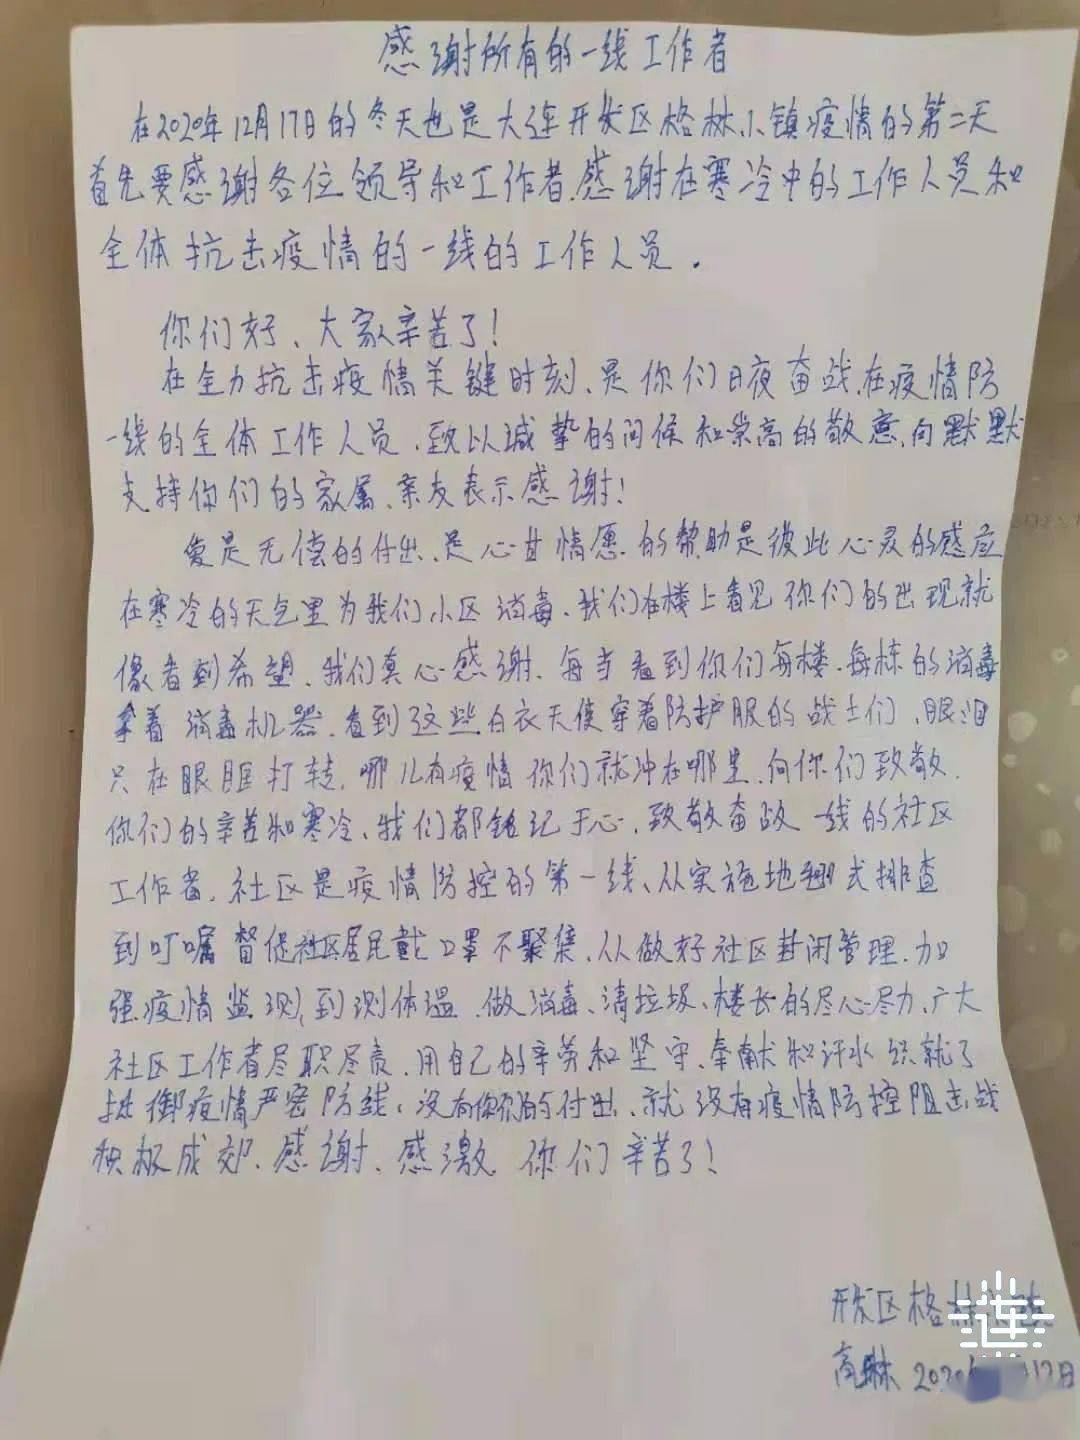 感谢所有的一线工作者
在2020年12月17日的冬天也是大连开发区格林小镇疫情的第二天
首先要感谢各位领导和工作者.感谢在寒冷中的工作人员和
全体抗击疫情的一线的工作人员.
你们好、大家辛苦了!
在全力抗击疫情关键时刻、是你们日夜奋战.在疫情防
一线的全体工作人员.致以诚挚的问候和崇高的敬意.向默默
支持你们的家属、亲友表示感谢!
爱是无偿的付出、是心甘情愿.的帮助是彼此心灵的感应
在寒冷的天气里为我们小区消毒、我们在楼上看见你们的出现就
像看到希望、我们真心感谢.每当看到你们每楼.每栋的消毒
拿着消毒机器.看到这些白衣天使穿着防护服的战士们、眼泪
只在眼眶打转.哪儿有疫情你们就冲在哪里.向你们致敬.
你们的辛苦和寒冷、我们都铭记于心.致敬奋战一线的社区
工作者.社区是疫情防控的第一线、从实施地式排查
到叮嘱督促社区居民戴口罩不聚集、从做好社区封闭管理.加
强疫情监测,到测体温.做消毒、清垃圾、楼长的尽心尽力、广大
社区工作者尽职尽责.用自己的辛劳和坚守、奉献和汗水织就了
御疫情严密防线、没有你们的付出、就没有疫情防控阻击战
积极成效、感谢、感激你们辛苦了!
开发区格林
高琳 2020 17日
连